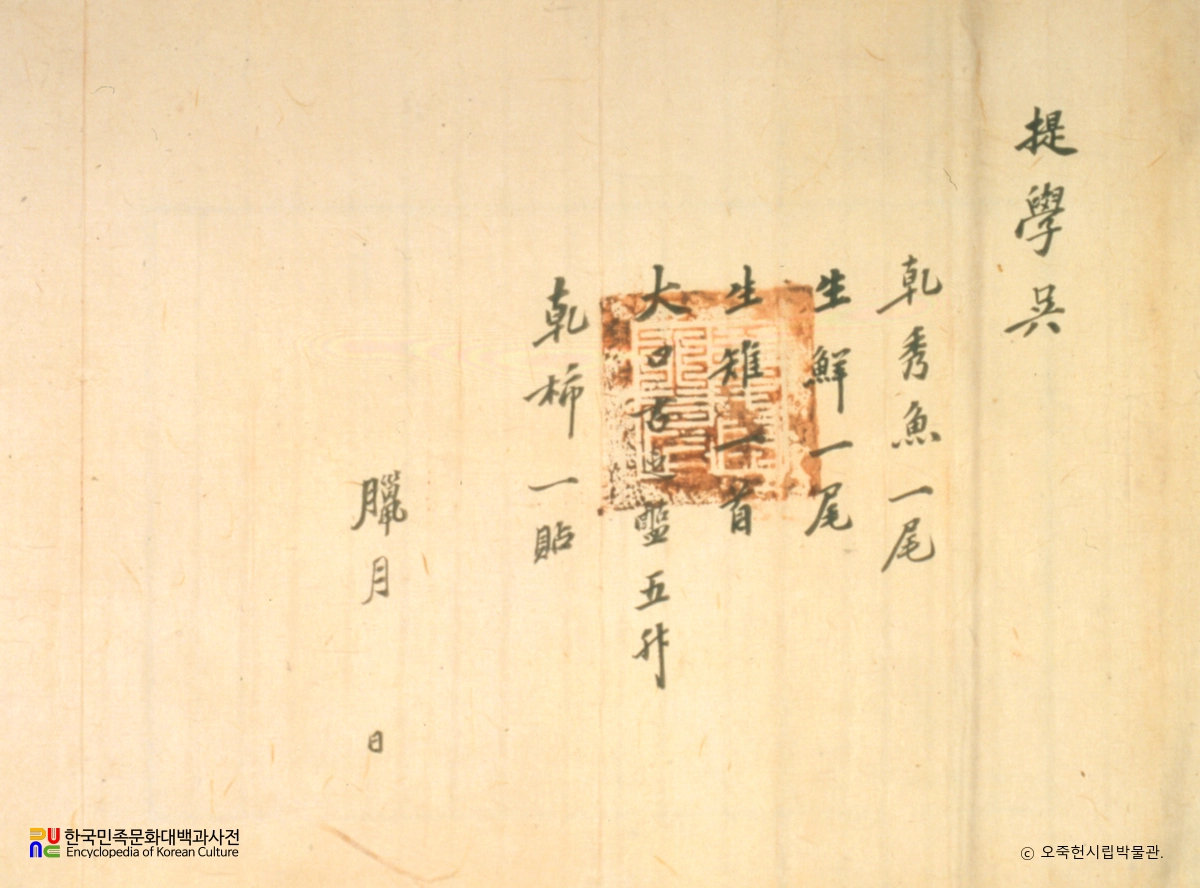 提學吳
乾秀魚一尾
生鮮一尾
生雉一首
大口古之醢五升
乾柿一貼
臘月 日
한국민족문화대백과사전
Encyclopedia of Korean Culture
ⓒ 오죽헌시립박물관.